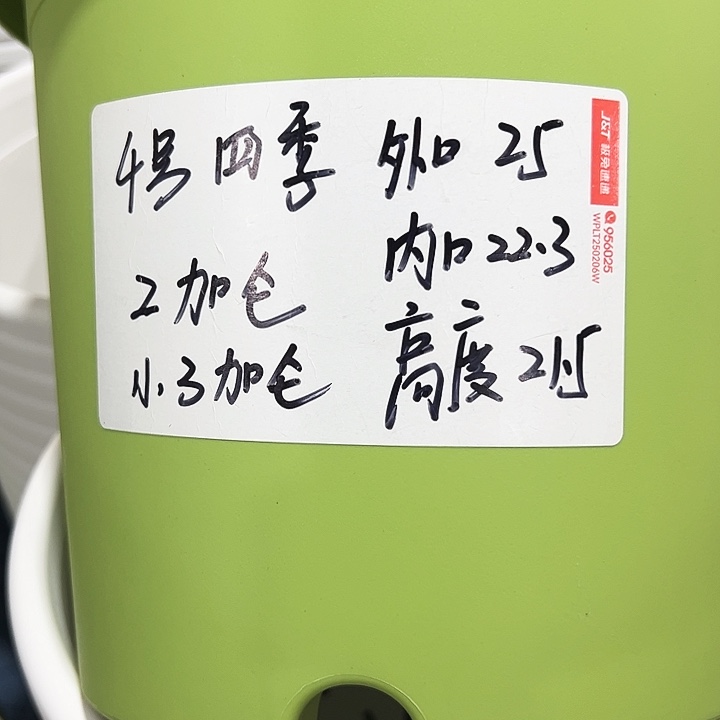 4号四季
2加仑
小3加仑
外口 25
内口 22.3
高度 21.5
J&T 极兔速递
956025
WPLT250206W